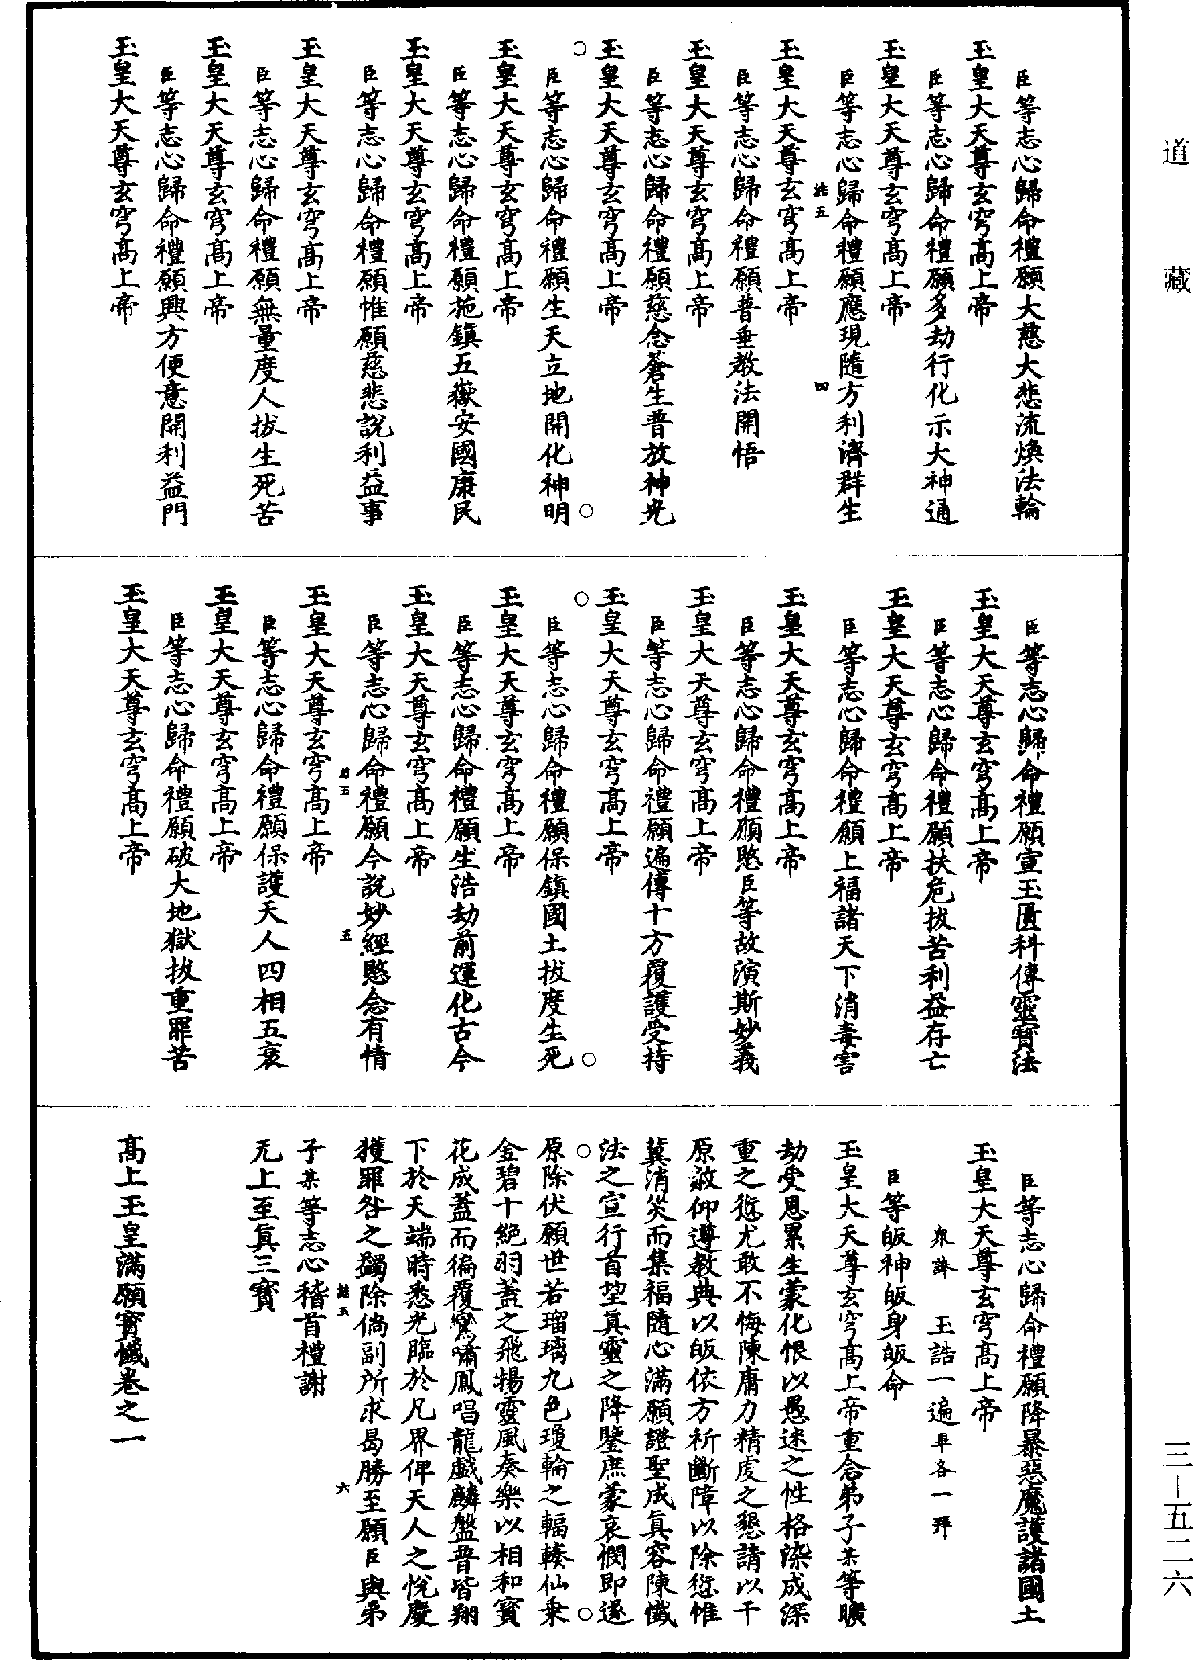 道藏
臣等志心歸命禮願大慈大悲流煥法輪
玉皇大天尊玄穹高上帝
臣等志心歸命禮願多劫行化示大神通
玉皇大天尊玄穹高上帝
臣等志心歸命禮願應現隨方利濟群生
玉皇大天尊玄穹高上帝
臣等志心歸命禮願普垂教法開悟
玉皇大天尊玄穹高上帝
臣等志心歸命禮願慈念蒼生普放神光
玉皇大天尊玄穹高上帝
臣等志心歸命禮願生天立地開化神明
玉皇大天尊玄穹高上帝
臣等志心歸命禮願施鎮五嶽安國康民
玉皇大天尊玄穹高上帝
臣等志心歸命禮願惟願慈悲說利益事
玉皇大天尊玄穹高上帝
臣等志心歸命禮願無量度人拔生死苦
玉皇大天尊玄穹高上帝
臣等志心歸命禮願興方便意開利益門
玉皇大天尊玄穹高上帝
臣等志心歸命禮願宣玉匱科傳靈寶法
玉皇大天尊玄穹高上帝
臣等志心歸命禮願扶危拔苦利益存亡
玉皇大天尊玄穹高上帝
臣等志心歸命禮願上福諸天下消毒害
玉皇大天尊玄穹高上帝
臣等志心歸命禮願愍臣等故演斯妙義
玉皇大天尊玄穹高上帝
臣等志心歸命禮願遍傳十方覆護受持
玉皇大天尊玄穹高上帝
臣等志心歸命禮願保鎮國土拔度生死
玉皇大天尊玄穹高上帝
臣等志心歸命禮願生浩劫前運化古今
玉皇大天尊玄穹高上帝
臣等志心歸命禮願今說妙經愍念有情
玉皇大天尊玄穹高上帝
臣等志心歸命禮願保護天人四相五衰
玉皇大天尊玄穹高上帝
臣等志心歸命禮願破大地獄拔重罪苦
玉皇大天尊玄穹高上帝
臣等志心歸命禮願降暴惡魔護諸國土
玉皇大天尊玄穹高上帝
眾誦 玉誥一遍畢各一拜
臣等皈神皈身皈命
玉皇大天尊玄穹高上帝重念弟子某等曠
劫受恩累生蒙化恨以愚迷之性格染成深
重之愆尤敢不悔陳庸力精虔之懇請以干
原赦仰遵教典以皈依方祈斷障以除愆惟
冀消災而集福隨心滿願證聖成真容陳懺
法之宣行首望真靈之降鑒庶蒙哀憫即遂
原除伏願世若瑠璃九色瓊輪之輻輳仙乘
金碧十絕羽蓋之飛揚靈風奏樂以相和寶
花成蓋而徧覆鸞嘯鳳唱龍戲麟盤普皆翔
下於天端時悉光臨於凡界俾天人之悅慶
獲罪咎之蠲除倘副所求曷勝至願臣與弟
子某等志心稽首禮謝
无上至真三寶
高上玉皇滿願寶懺卷之一
三－五二六